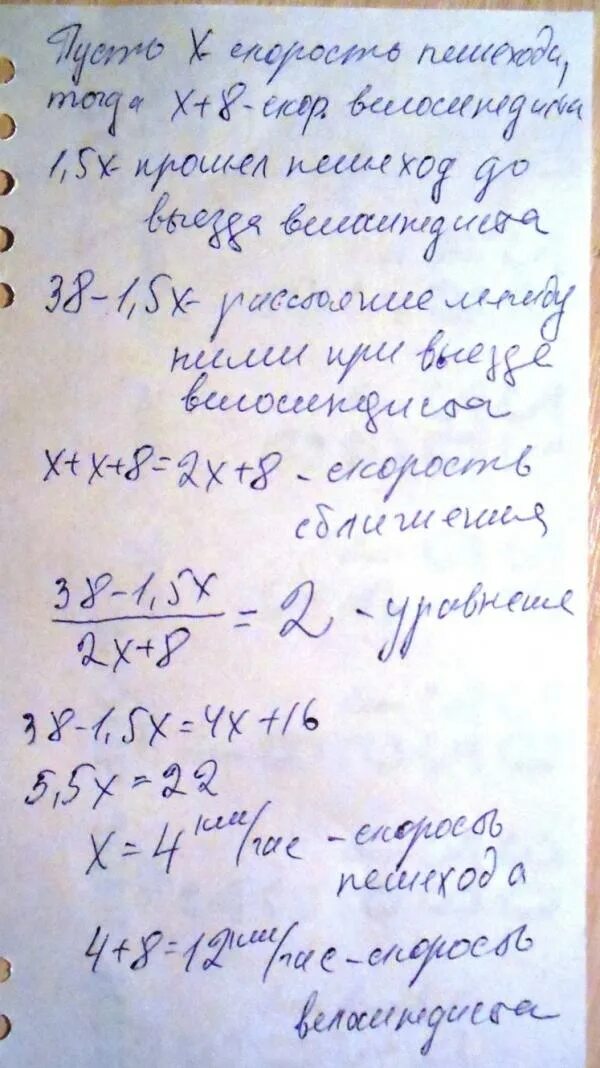 Пусть х- скорость пешехода,
тогда х+8-скор. велосипедиста
1,5х- прошел пешеход до
выезда велосипедиста
38-1,5х- расстояние между
ними при выезде
велосипедиста
х+х+8=2х+8 - скорость
сближения
38-1,5х
2х+8
= 2 - уравнение
38-1,5х=4х+16
5,5х=22
х=4 км/час - скорость
пешехода
4+8=12 км/час - скорость
велосипедиста